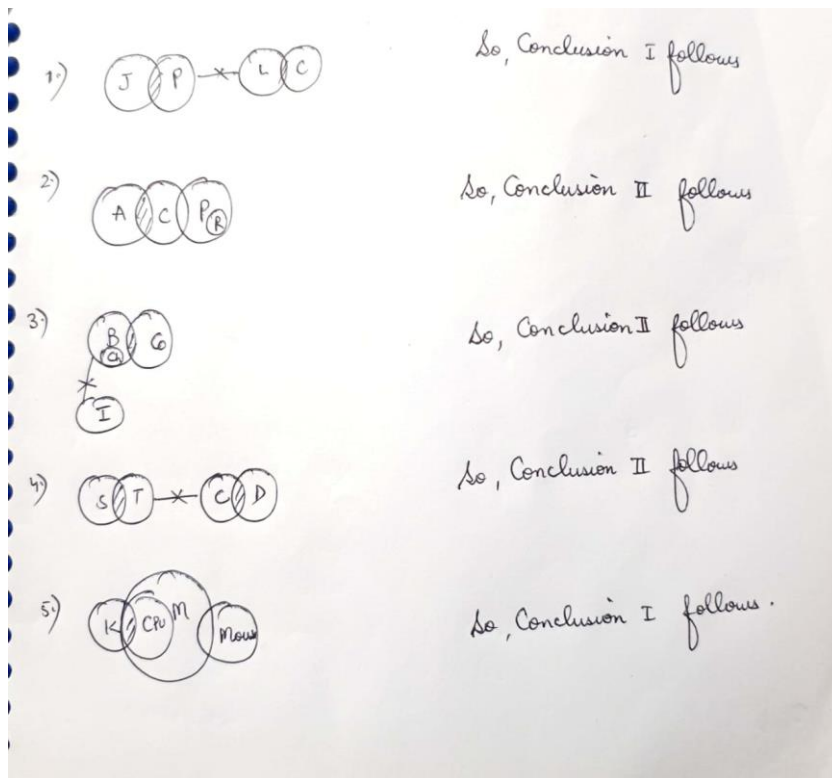 1.) J P L C So, Conclusion I follows
2.) A C P R So, Conclusion II follows
3.) B G So, Conclusion II follows
I
4.) S T C D So, Conclusion II follows
5.) K CPU M Mous So, Conclusion I follows.